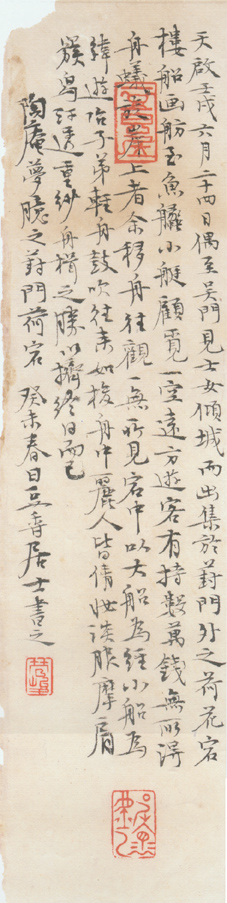 天啟壬戌六月二十四日偶至吳門見士女傾城而出集於葑門外之荷花宕
樓船画舫至魚艖小艇顧覓一空遠方遊客有持數萬錢無所得
舟蟻旋岸上者余移舟往觀一無所見宕中以大船為經小船為
緯遊冶子弟輕舟鼓吹往來如梭舟中麗人皆倩妝淡服摩肩
簇舄汗透重紗舟楫之勝以擠終日而已
陶庵夢憶之葑門荷宕 癸未春日豆香居士書之